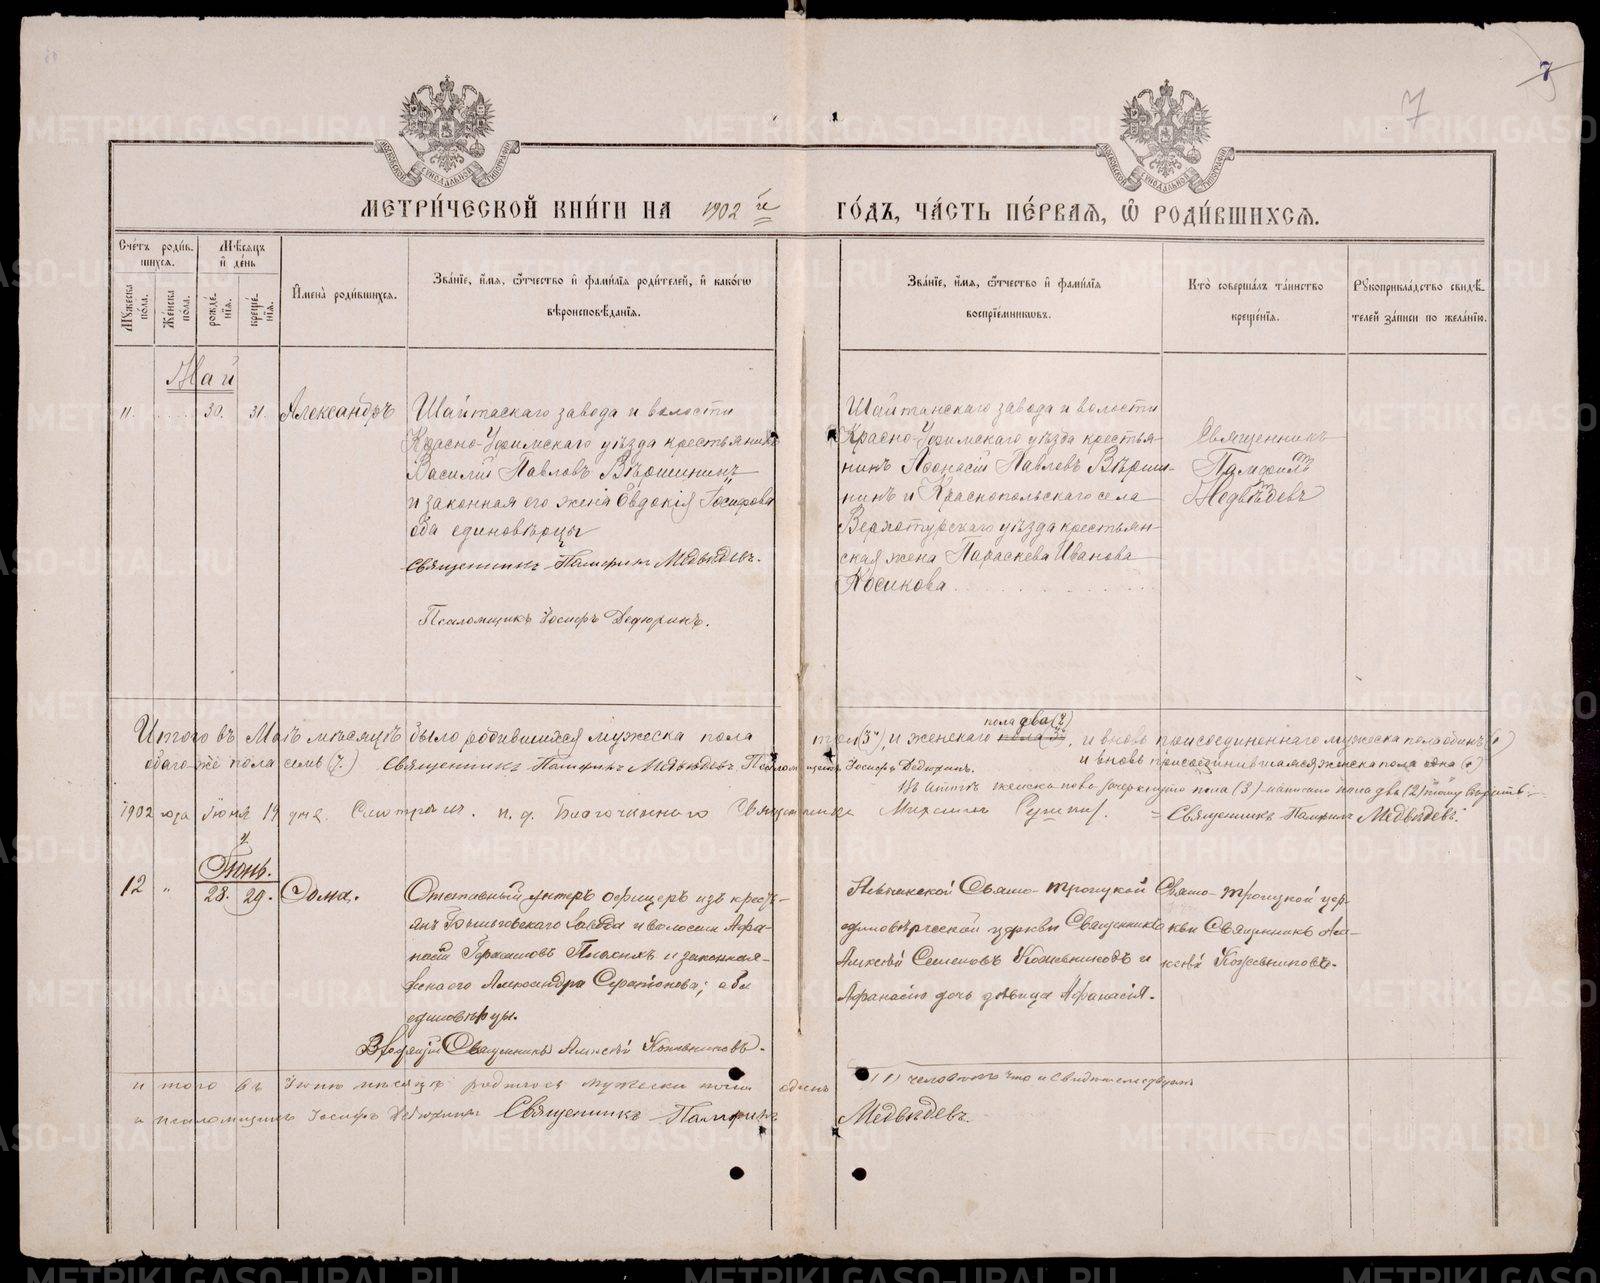 7
7
МЕТРИ́ЧЕСКОЙ КНИ́ГИ НА 1902 й
ГО́ДЪ, ЧА́СТЬ ПЕ́РВАѦ, Ѡ РОДИ́ВШИХСѦ.
Сче́тъ роди́в-
шихсѧ.
Мꙋжеска по́ла.
Же́нска по́ла.
Мѣ́сѧцъ и де́нь
рожде́нїѧ.
креще́нїѧ.
И҆мена̀ роди́вшихсѧ.
Зва́нїе, и҆́мѧ, ѻ҆́тчество и҆ фами́лїѧ роди́телей, и҆ како́гѡ
вѣроисповѣ́данїѧ.
Зва́нїе, и҆́мѧ, ѻ҆́тчество и҆ фами́лїѧ
воспрїе́мниковъ.
Кто̀ соверша́лъ та́инство
креще́нїѧ.
Рꙋкоприкла́дство свидѣ́-
телей за́писи по жела́нїю.
Май
11. 30. 31. Александръ
Шайтанскаго завода и волости
Красно-Уфимскаго уѣзда крестьянинъ
Василий Павловъ Вѣршининъ
и законная его жена Евдокія Іосифова
оба единовѣрцы
Священникъ Памфилъ Медвѣдевъ.
Псаломщикъ Іосифъ Дедюринъ.
Шайтанскаго завода и волости
Красно-Уфимскаго уѣзда крестья-
нинъ Афонасій Павловъ Вѣрши-
нинъ и Краснопольскаго села
Верхотурскаго уѣзда крестьян-
ская жена Параскева Иванова
Косикова
Священникъ
Памфилъ
Медвѣдевъ
Итого въ Маѣ мѣсяцѣ было родившихся мужеска пола три (3), и женскаго пола два (2), и вновь присоединеннаго мужеска пола одинъ (1)
обаго же пола семь (7.) Священникъ Памфилъ Медвѣдевъ. Псаломщикъ Іосифъ Дедюринъ. и вновь присоединившаяся женска пола одна (1)
1902 года Іюня 19 дня. Смотрѣлъ. и. д. Благочиннаго Священникъ Михаилъ
Священникъ Памфилъ Медвѣдевъ.
Іюнь.
12 " 28. 29. Фома.
Отставный унтеръ офицеръ изъ кресть-
янъ завода и волости Афа-
насій и законная
жена его Александра; оба
единовѣрцы.
Священникъ Алексѣй Кожевниковъ.
Невьянской Свято-Троицкой
единовѣрческой церкви Священникъ
Алексѣй Семеновъ Кожевниковъ и
Афанасію дочь дѣвица Афанасія.
Свято-Троицкой цер-
кви Священникъ Але-
ксѣй Кожевниковъ.
итого въ Іюнѣ мѣсяцѣ родилось мужеска пола одинъ (1) человѣкъ что и свидѣтельствуютъ
псаломщикъ Іосифъ Дедюринъ Священникъ Памфилъ Медвѣдевъ.